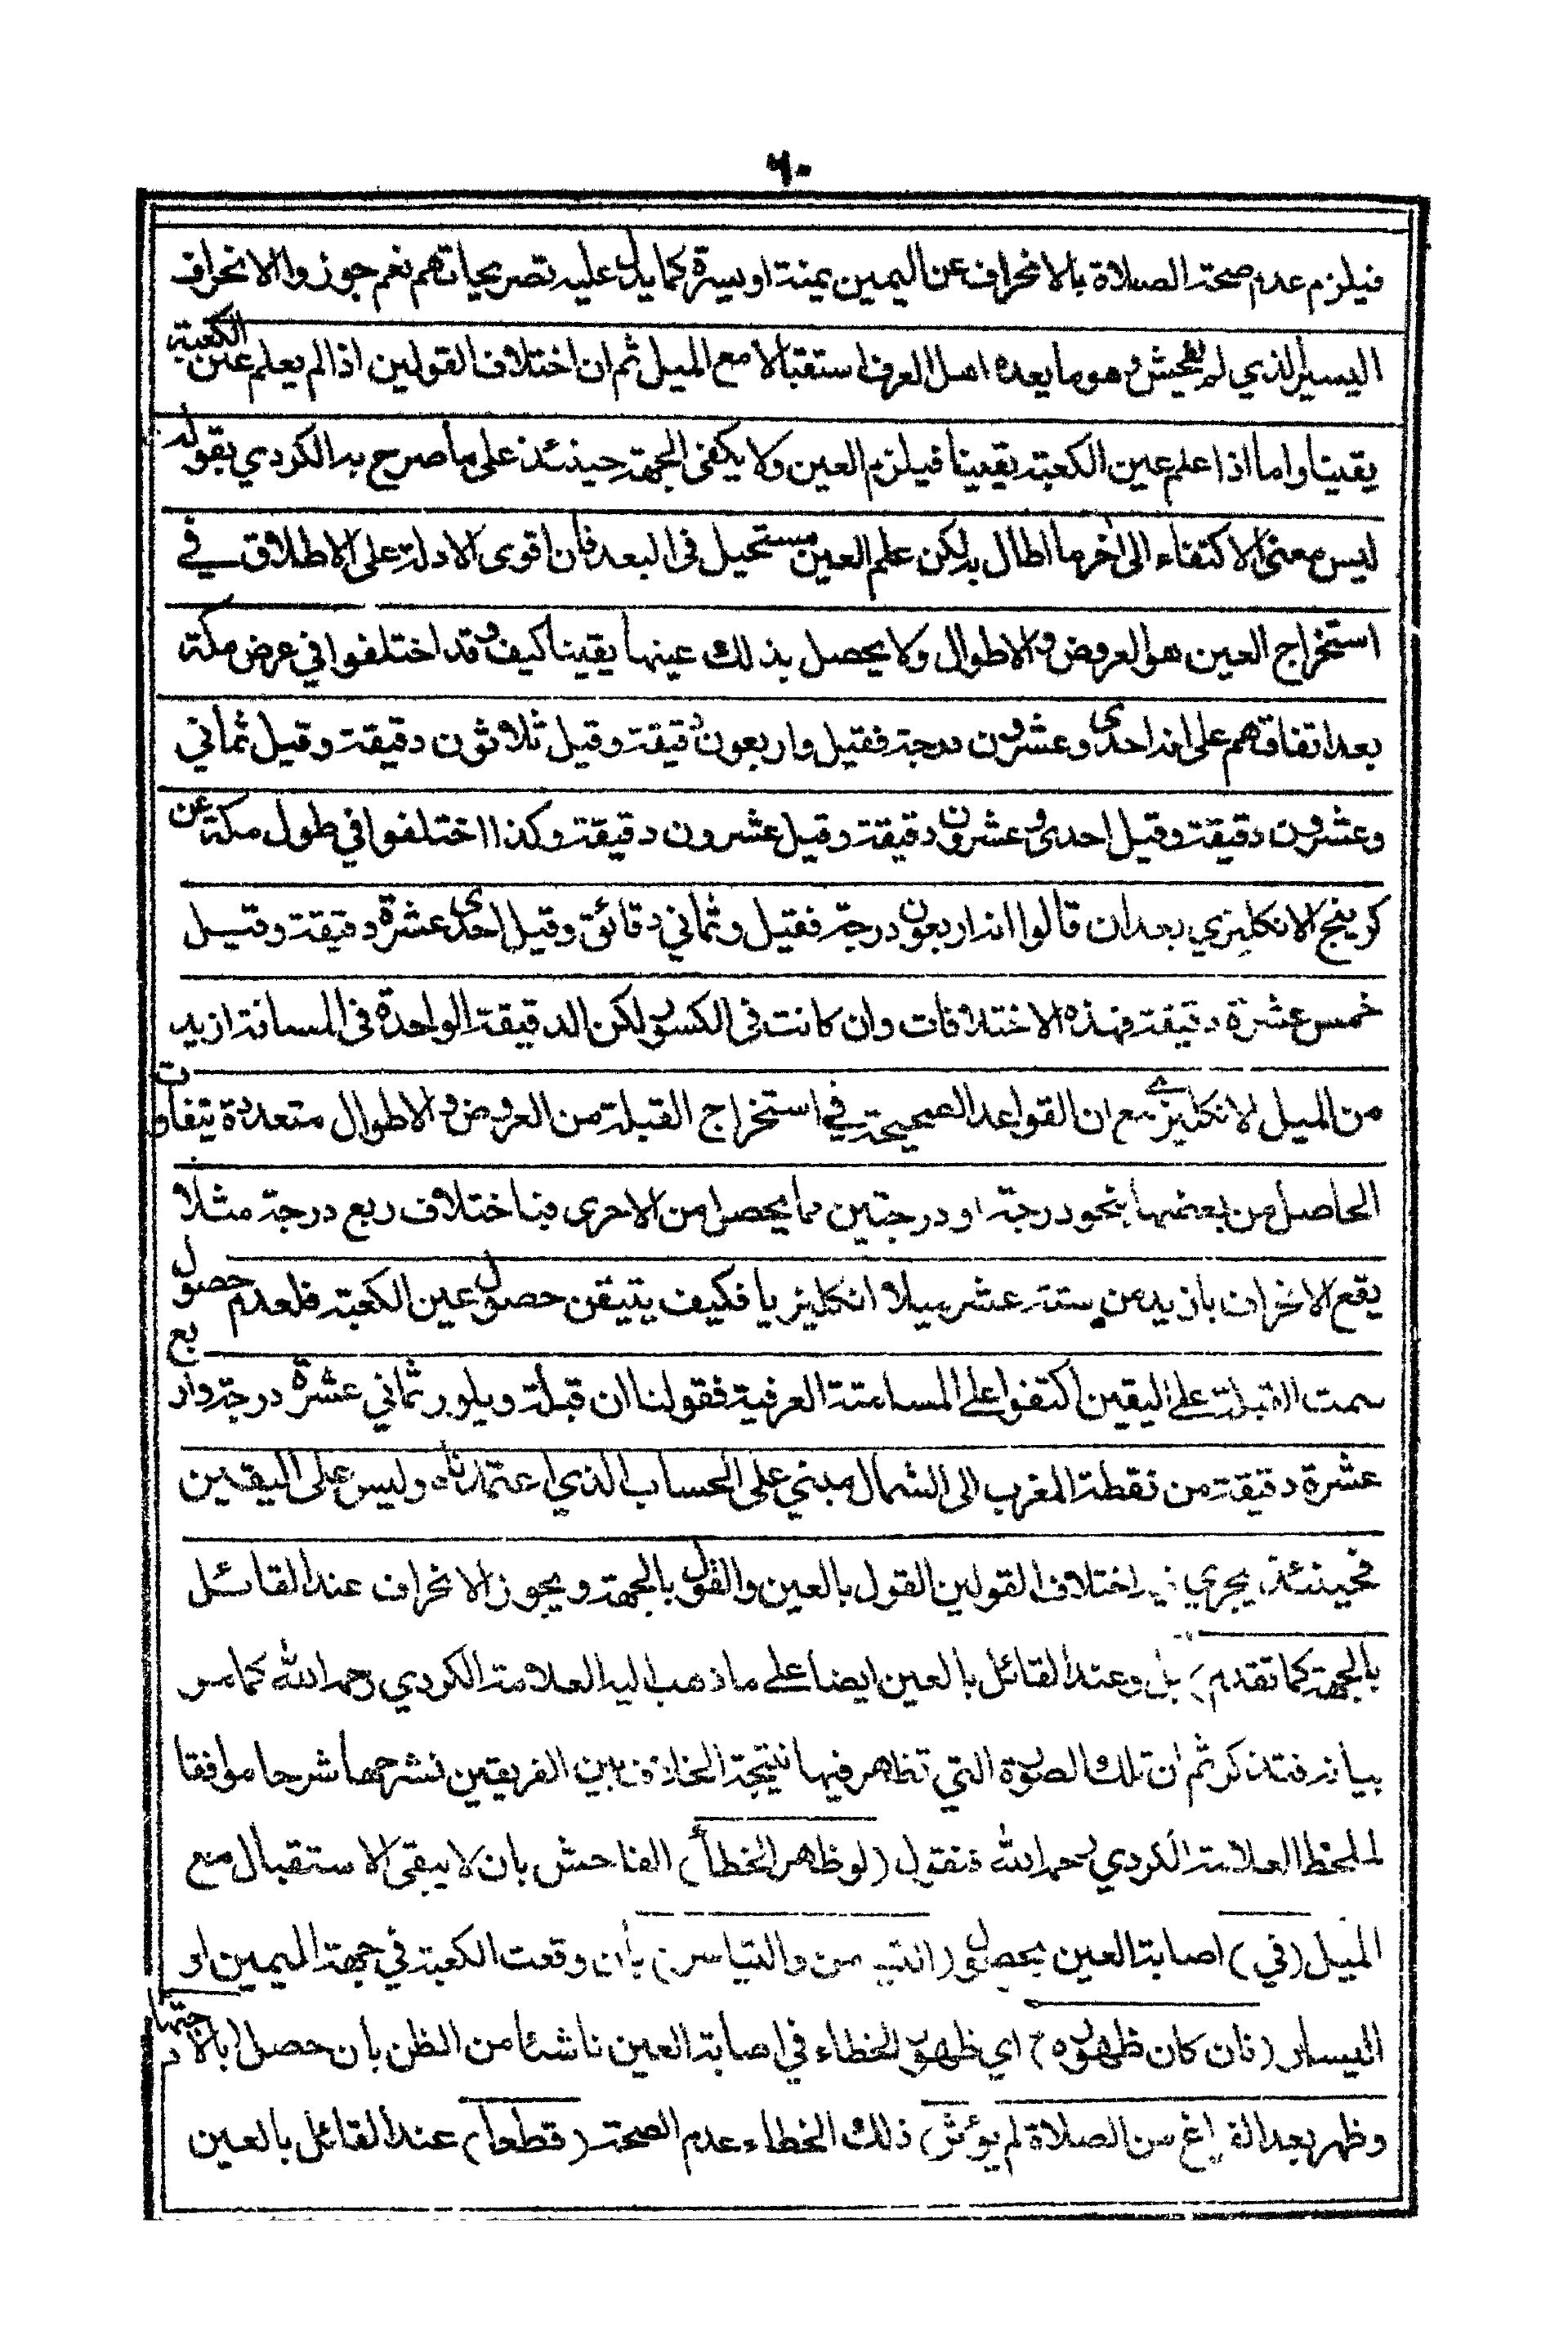 ٦٠
فيلزم عدم صحة الصلاة بالانحراف عن اليمين يمنة او يسرة كما يدل عليه تصريحاتهم نعم جوزوا الانحراف
اليسير الذي لم يفحش وهو ما يعده اهل العرف استقبالا مع الميل ثم ان اختلاف القولين اذا لم يعلم عين الكعبة
يقينا واما اذا علم عين الكعبة يقينا فيلزم العين ولا يكفى الجهة حينئذ على ما صرح به الكردي بقوله
ليس معنى الاكتفاء الى اخر ما اطال به لكن علم العين مستحيل فى البعد فان اقوى الادلة على الاطلاق في
استخراج العين هو العروض والاطوال ولا يحصل بذلك عينها يقينا كيف وقد اختلفوا في عرض مكة
بعد اتفاقهم على انه احدى وعشرون درجة فقيل واربعون دقيقة وقيل ثلاثون دقيقة وقيل ثماني
وعشرون دقيقة وقيل احدى وعشرون دقيقة وقيل عشرون دقيقة وكذا اختلفوا في طول مكة عن
كرينج الانكليزي بعد ان قالوا انه اربعون درجة فقيل وثماني دقائق وقيل احدى عشرة دقيقة وقيل
خمس عشرة دقيقة فهذه الاختلافات وان كانت فى الكسور لكن الدقيقة الواحدة فى المسافة ازيد
من الميل الانكليزي مع ان القواعد الصحيحة في استخراج القبلة من العروض والاطوال متعددة يتفاوت
الحاصل من بعضها بنحو درجة او درجتين مما يحصل من الاخرى فباختلاف ربع درجة مثلا
يقع الانحراف بازيد من ستة عشر ميلا انكليزيا فكيف يتيقن حصول عين الكعبة فلعدم حصول
سمت القبلة على اليقين اكتفوا على المسامتة العرفية فقولنا ان قبلة ويلور ثماني عشرة درجة واربع
عشرة دقيقة من نقطة المغرب الى الشمال مبني على الحساب الذي اعتمدناه وليس على اليقين
فحينئذ يجري فيه اختلاف القولين القول بالعين والقول بالجهة ويجوز الانحراف عند القائل
بالجهة كما تقدم بل وعند القائل بالعين ايضا على ما ذهب اليه العلامة الكردي رحمه الله كما مر
بيانه فتذكر ثم ان تلك الصورة التي تظهر فيها نتيجة الخلاف بين الفريقين نشرحها شرحا موافقا
لملحظ العلامة الكردي رحمه الله فنقول (لو ظهر الخطأ) الفاحش بان لا يبقى الاستقبال مع
الميل (في) اصابة العين بحصول (التيامن والتياسر) بأن وقعت الكعبة في جهة اليمين او
اليسار (فان كان ظهوره) اي ظهور الخطاء في اصابة العين ناشئا من الظن بأن حصل (بالاجتهاد
وظهر بعد الفراغ من الصلاة لم يؤثر) ذلك الخطاء عدم الصحة (قطعا) عند القائل بالعين